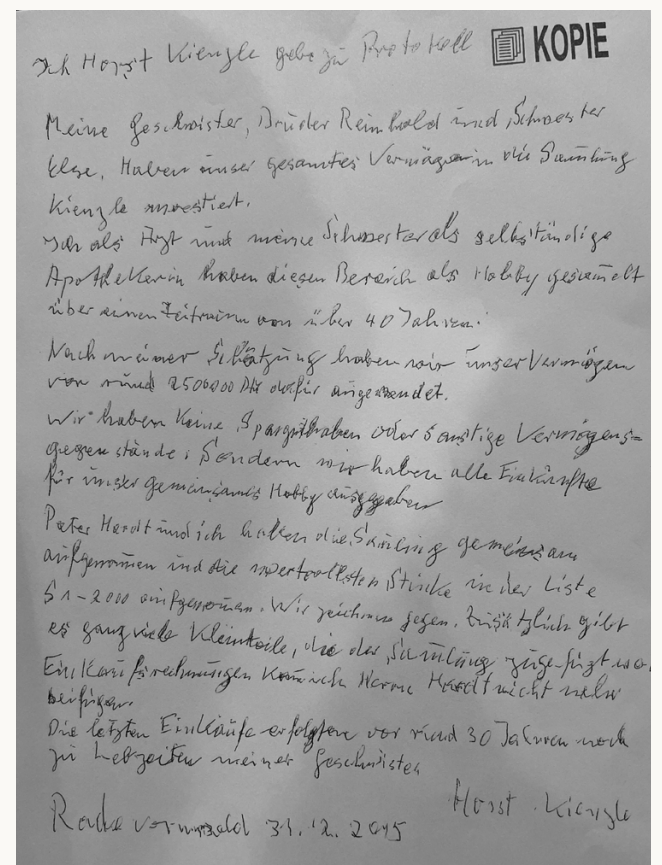 Ich Horst Kienzle gebe zu Protokoll
KOPIE
Meine Geschwister, Bruder Reinhold und Schwester
Else, Haben unser gesamtes Vermögen in die Samlung
Kienzle investiert.
Ich als Arzt und meine Schwester als selbständige
Apothekerin haben diesen Bereich als Hobby gesamelt
über einen Zeitraum von über 40 Jahren.
Nach meiner Schätzung haben wir unser Vermögen
von rund 2500000 DM dafür angewendet.
Wir haben Keine Sparguthaben oder sonstige Vermögens=
gegenstände, Sondern wir haben alle Einkünfte
für unser gemeinsames Hobby ausgegeben
Peter Hardt und ich haben die Samlung gemeinsam
aufgenomen und die wertvollsten Stücke in der Liste
S 1-2000 aufgenomen. Wir zeichnen gegen. Zusätzlich gibt
es ganz viele Kleinteile, die der Samlung zugefügt
Einkaufsrechnungen Kann ich Herrn Hardt nicht mehr
beifügen.
Die letzten Einkäufe erfolgten vor rund 30 Jahren noch
zu Lebzeiten meiner Geschwister
Horst Kienzle
Radevormwald 31.12.2015